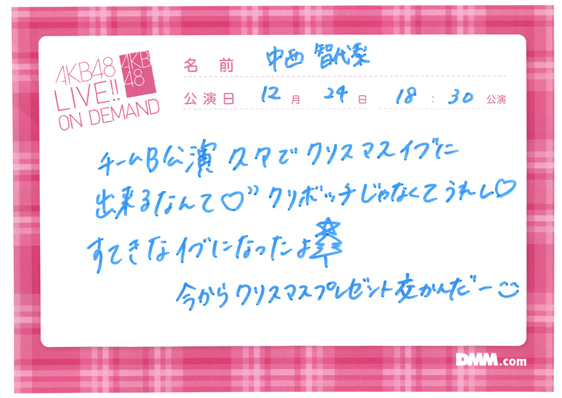 AKB48
LIVE!!
ON DEMAND
AKB
48
名前 中西 智代梨
公演日 12月 24日 18:30 公演
チームB公演 久々で クリスマスイブに
出来るなんて♡” クリボッチじゃなくてうれし♡
すてきなイブになったよ
今からクリスマスプレゼント交かんだー
DMM.com